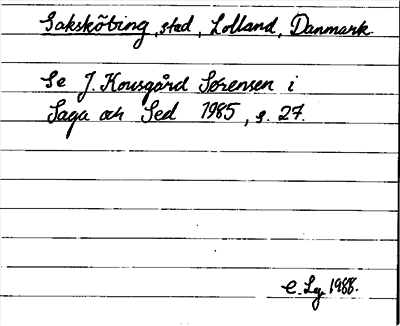 Sakskôbing, stad, Lolland, Danmark.
Se J. Kousgård Sørensen i
Saga och Sed 1985, s. 27.
e. Lg. 1988.